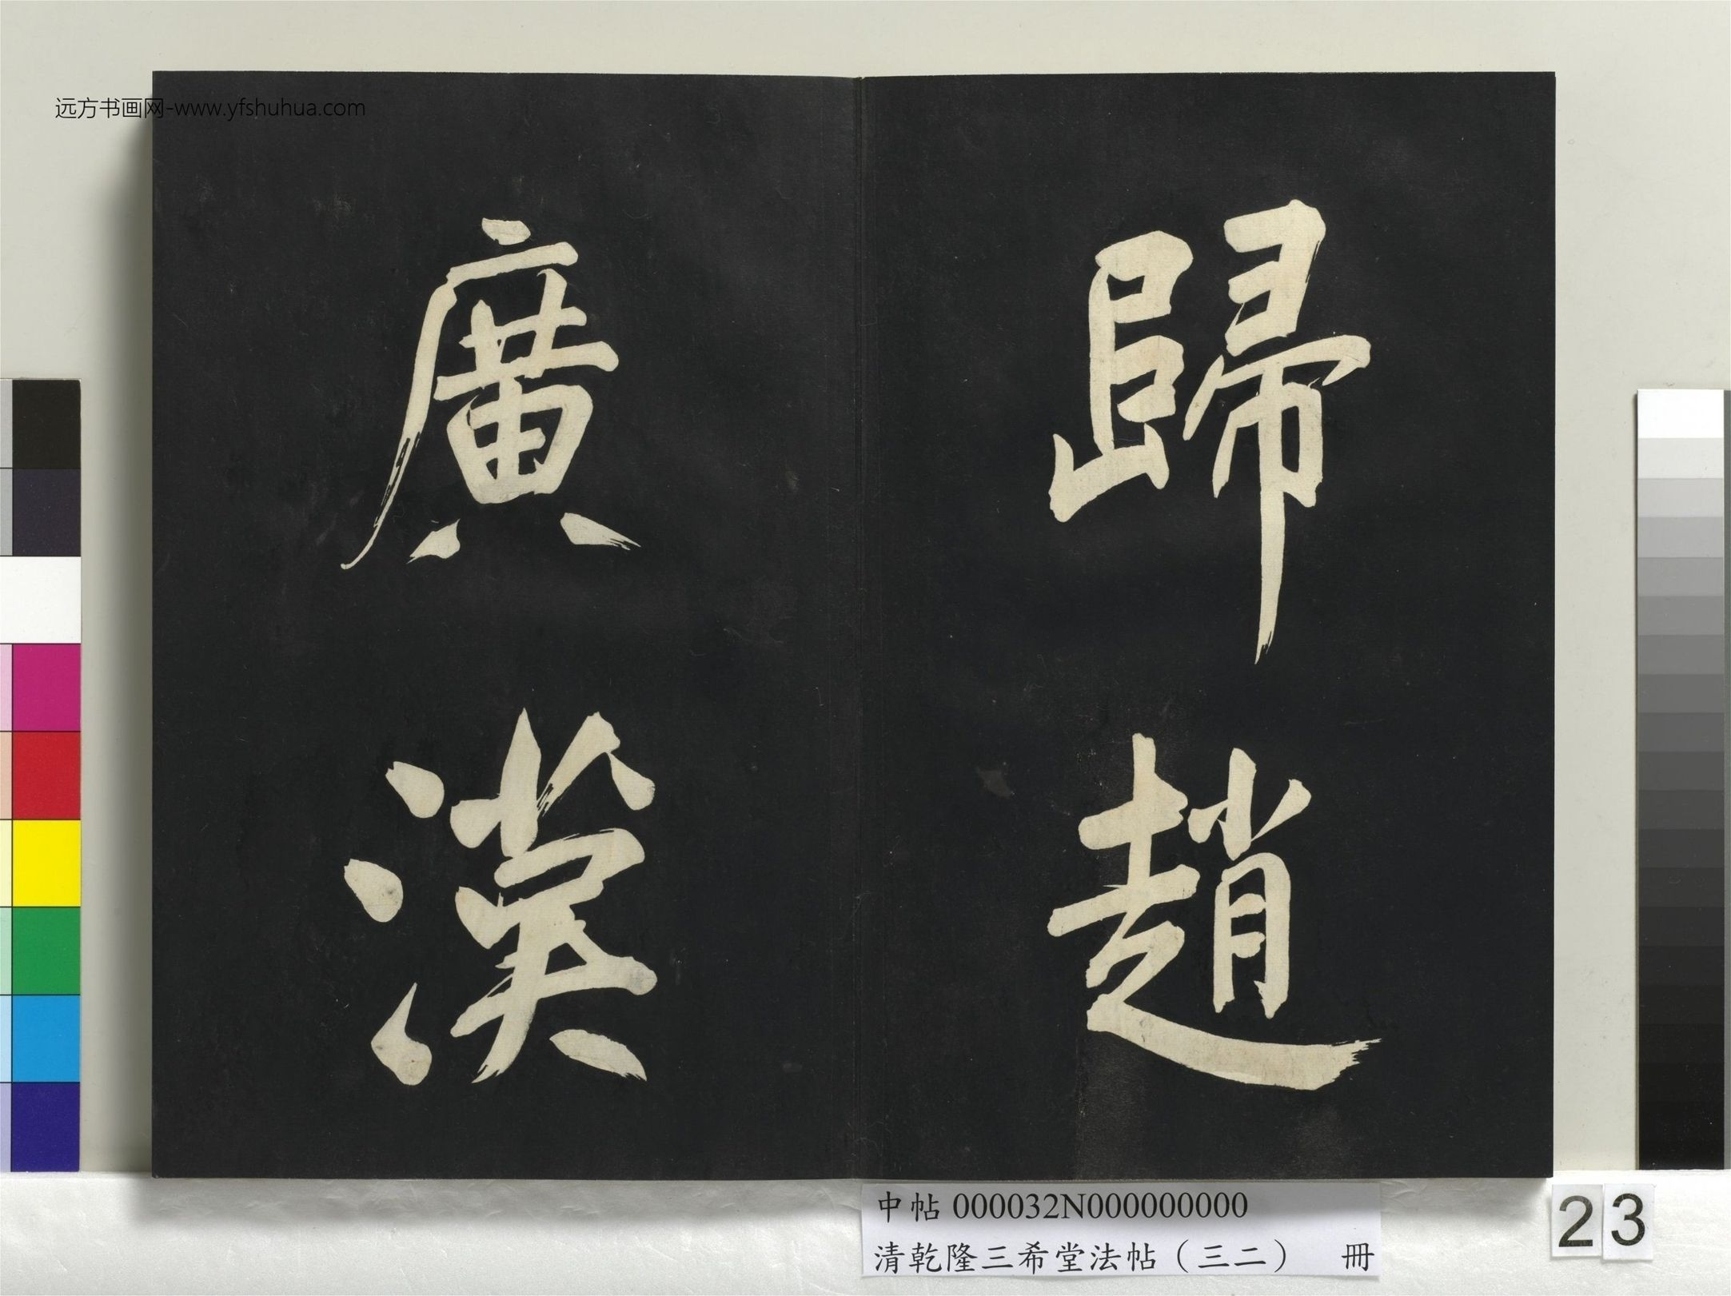 远方书画网-www.yfshuhua.com
歸趙
廣漢
中帖 000032N000000000
清乾隆三希堂法帖（三二） 冊
23